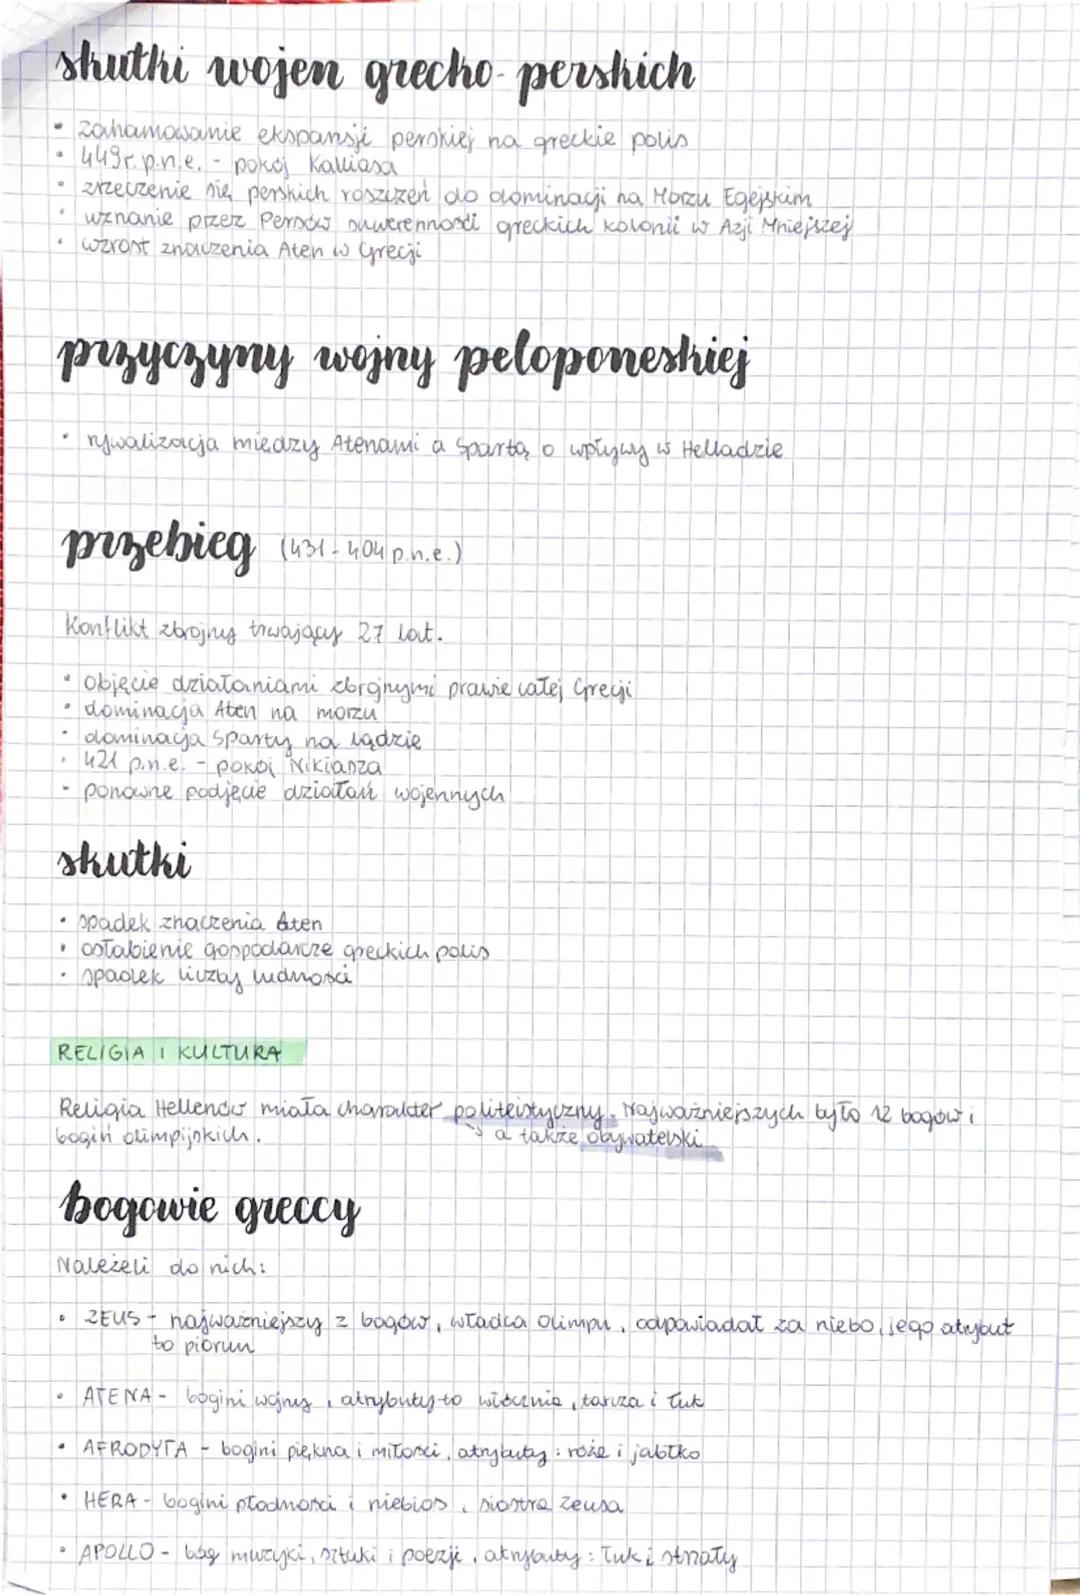 skutki wojen grecko-perskich
• zahamowanie ekspansji perskiej na greckie polis
• 449r. p.n.e. - pokój Kalliasa
• zrzeczenie się perskich roszczeń do dominacji na Morzu Egejskim
• uznanie przez Persów suwerenności greckich kolonii w Azji Mniejszej
• wzrost znaczenia Aten w Grecji
przyczyny wojny peloponeskiej
• rywalizacja między Atenami a Spartą o wpływy w Helladzie
przebieg (431-404 p.n.e.)
Konflikt zbrojny trwający 27 lat.
• objęcie działaniami zbrojnymi prawie całej Grecji
• dominacja Aten na morzu
• dominacja Sparty na lądzie
• 421 p.n.e. - pokój Nikiasza
• ponowne podjęcie działań wojennych
skutki
• spadek znaczenia Aten
• osłabienie gospodarcze greckich polis
• spadek liczby ludności
RELIGIA I KULTURA
Religia Hellenów miała charakter politeistyczny. Najważniejszych było 12 bogów i
bogiń olimpijskich.
↳ a także obywatelski
bogowie greccy
Należeli do nich:
• ZEUS - najważniejszy z bogów, władca Olimpu, odpowiadał za niebo, jego atrybut
to piorun
• ATENA - bogini wojny, atrybuty to włócznia, tarcza i łuk
• AFRODYTA - bogini piękna i miłości, atrybuty: róże i jabłko
• HERA - bogini płodności i niebios, siostra Zeusa
• APOLLO - bóg muzyki, sztuki i poezji, atrybuty: łuk i strzały